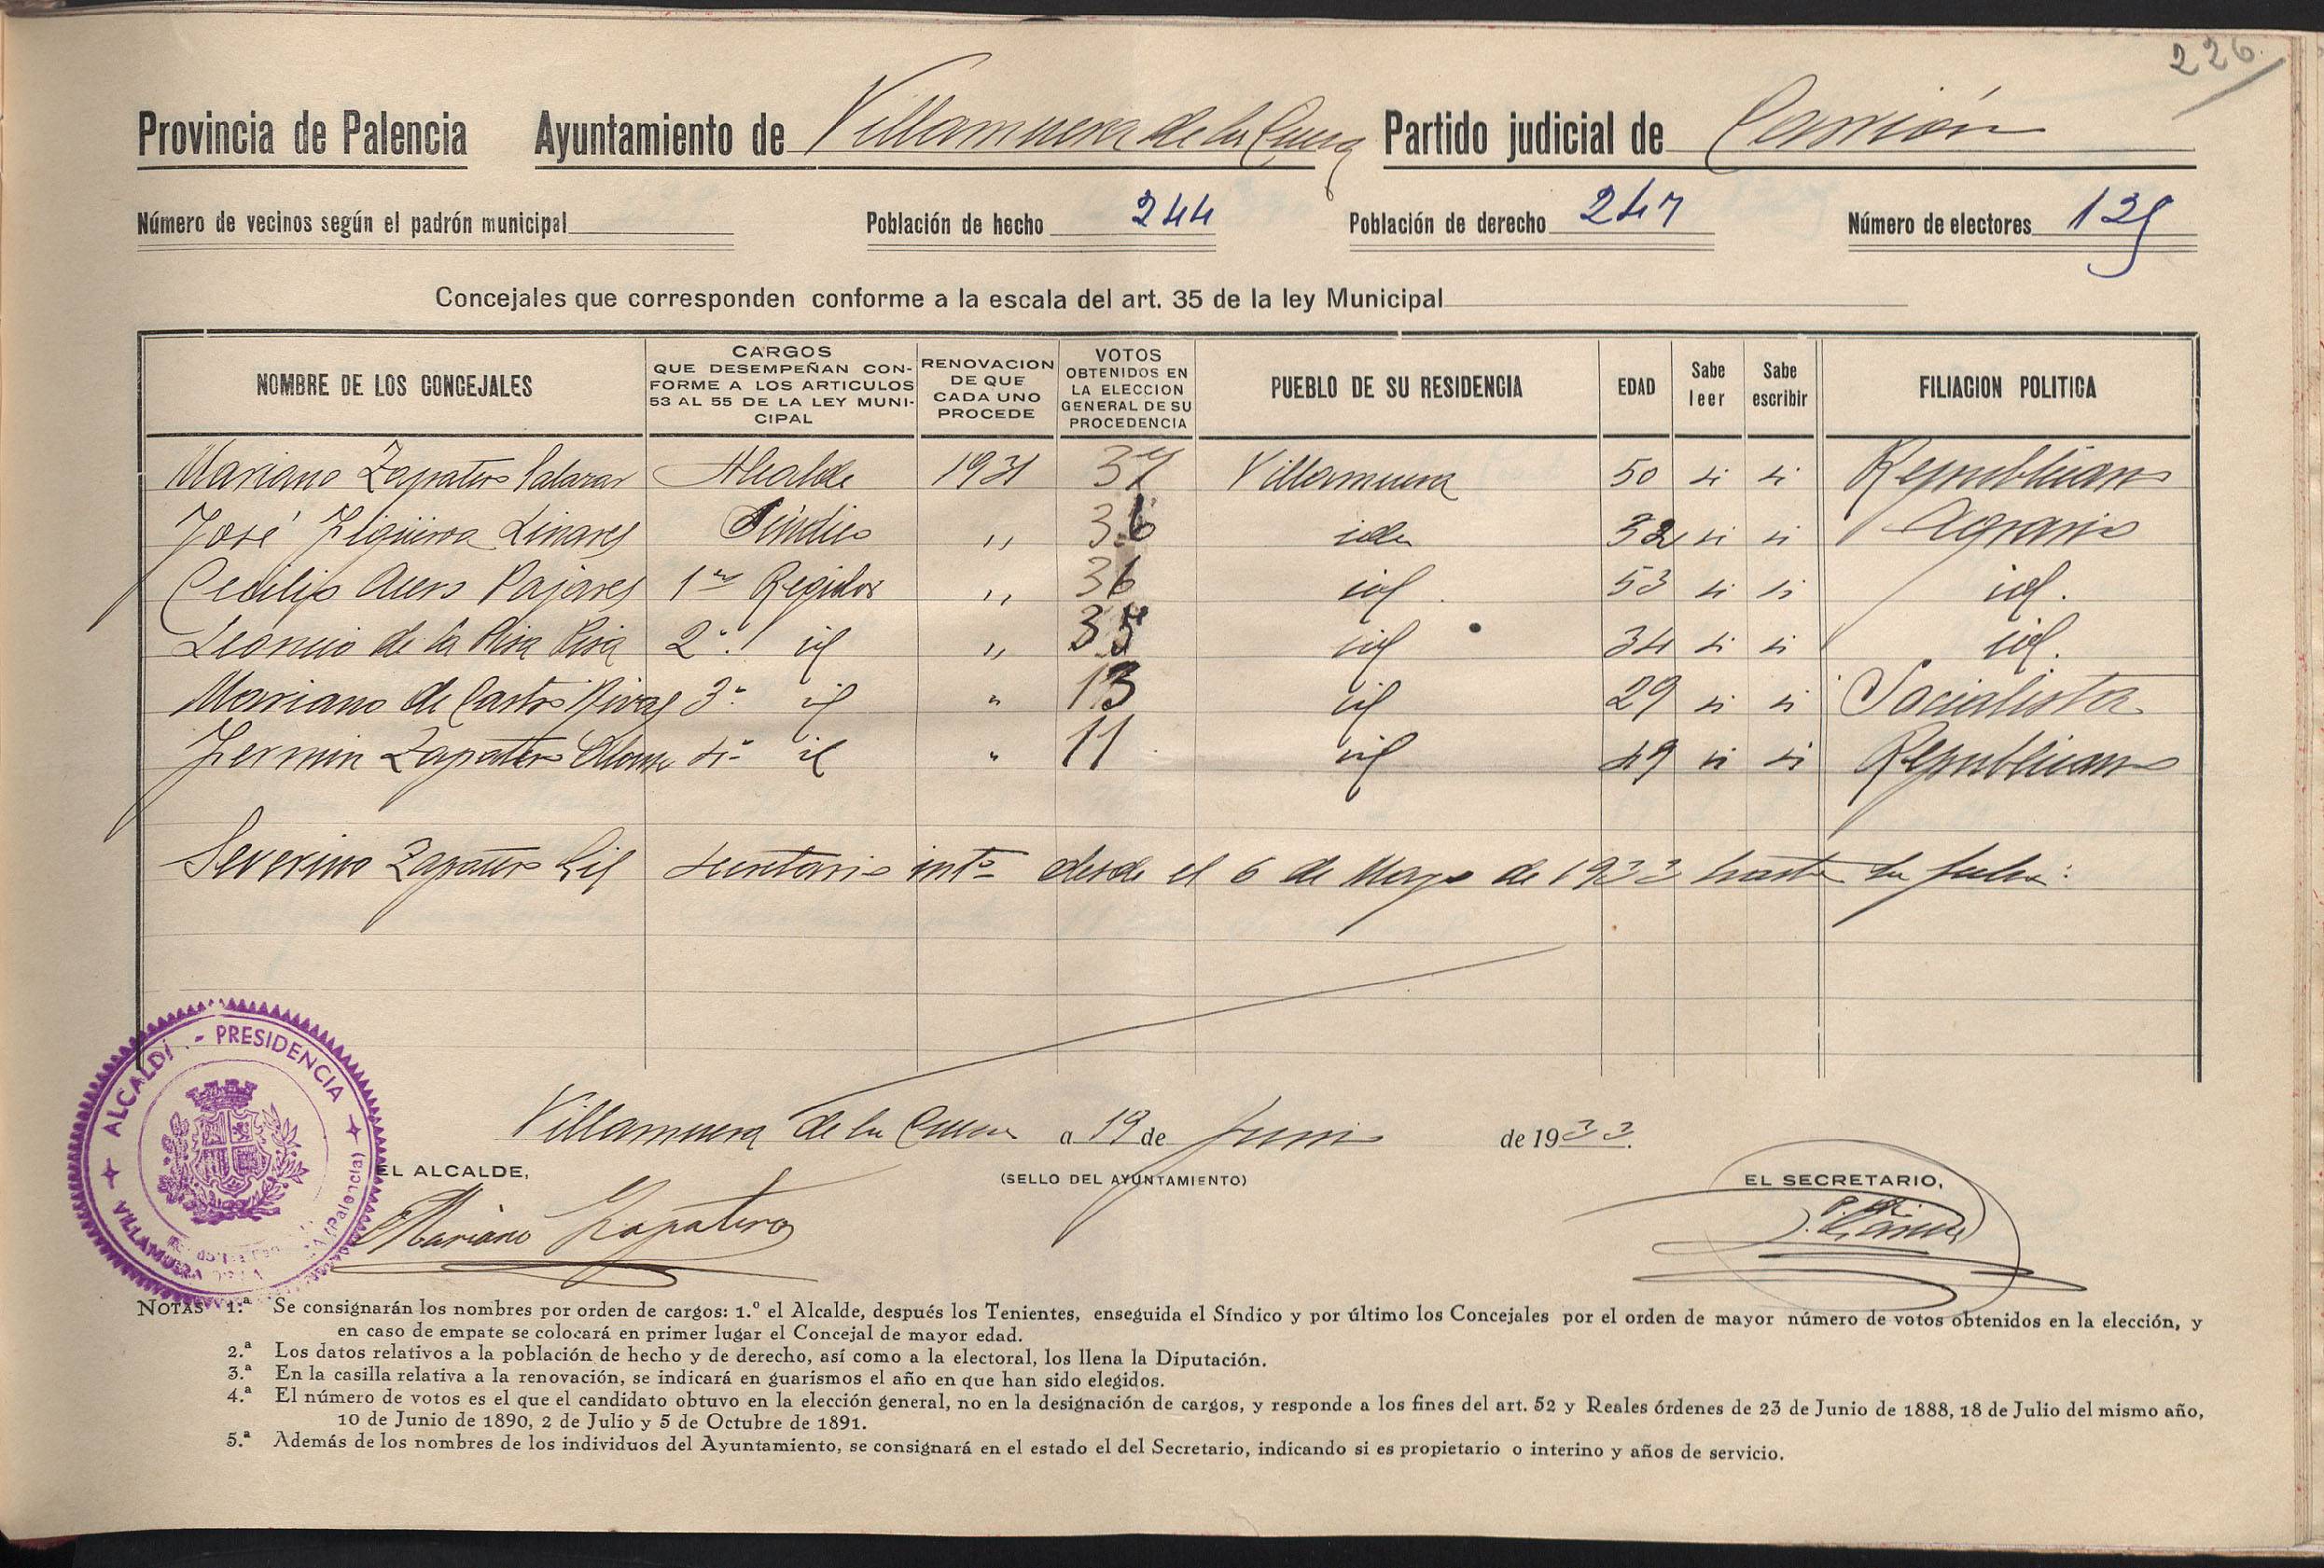 226
Provincia de Palencia Ayuntamiento de Villamuera de la Cueza Partido judicial de Carrión
Número de vecinos según el padrón municipal Población de hecho 244 Población de derecho 247 Número de electores 129
Concejales que corresponden conforme a la escala del art. 35 de la ley Municipal
NOMBRE DE LOS CONCEJALES CARGOS QUE DESEMPEÑAN CONFORME A LOS ARTICULOS 53 AL 55 DE LA LEY MUNICIPAL RENOVACION DE QUE CADA UNO PROCEDE VOTOS OBTENIDOS EN LA ELECCION GENERAL DE SU PROCEDENCIA PUEBLO DE SU RESIDENCIA EDAD Sabe leer Sabe escribir FILIACION POLITICA
Mariano Zapatero Salazar Alcalde 1931 37 Villamuera 50 si si Republicano
José Figueroa Linares Síndico ,, 36 idem 32 si si Agrario
Cecilio Acero Pajares 1er Regidor ,, 36 id 53 si si id.
Leoncio de la Riva Riva 2º id ,, 35 id 34 si si id.
Mariano de Castro Rivas 3º id " 13 id 29 si si Socialista
Fermin Zapatero Alonso 4º id " 11 id 49 si si Republicano
Severino Zapatero Gil secretario intº desde el 6 de Mayo de 1933 hasta la fecha.
ALCALDÍ - PRESIDENCIA
VILLAMUERA (Palencia)
Villamuera de la Cueza a 19 de Junio de 1933.
EL ALCALDE, (SELLO DEL AYUNTAMIENTO) EL SECRETARIO,
Mariano Zapatero
NOTAS 1.ª Se consignarán los nombres por orden de cargos: 1.º el Alcalde, después los Tenientes, enseguida el Síndico y por último los Concejales por el orden de mayor número de votos obtenidos en la elección, y
en caso de empate se colocará en primer lugar el Concejal de mayor edad.
2.ª Los datos relativos a la población de hecho y de derecho, así como a la electoral, los llena la Diputación.
3.ª En la casilla relativa a la renovación, se indicará en guarismos el año en que han sido elegidos.
4.ª El número de votos es el que el candidato obtuvo en la elección general, no en la designación de cargos, y responde a los fines del art. 52 y Reales órdenes de 23 de Junio de 1888, 18 de Julio del mismo año,
10 de Junio de 1890, 2 de Julio y 5 de Octubre de 1891.
5.ª Además de los nombres de los individuos del Ayuntamiento, se consignará en el estado el del Secretario, indicando si es propietario o interino y años de servicio.